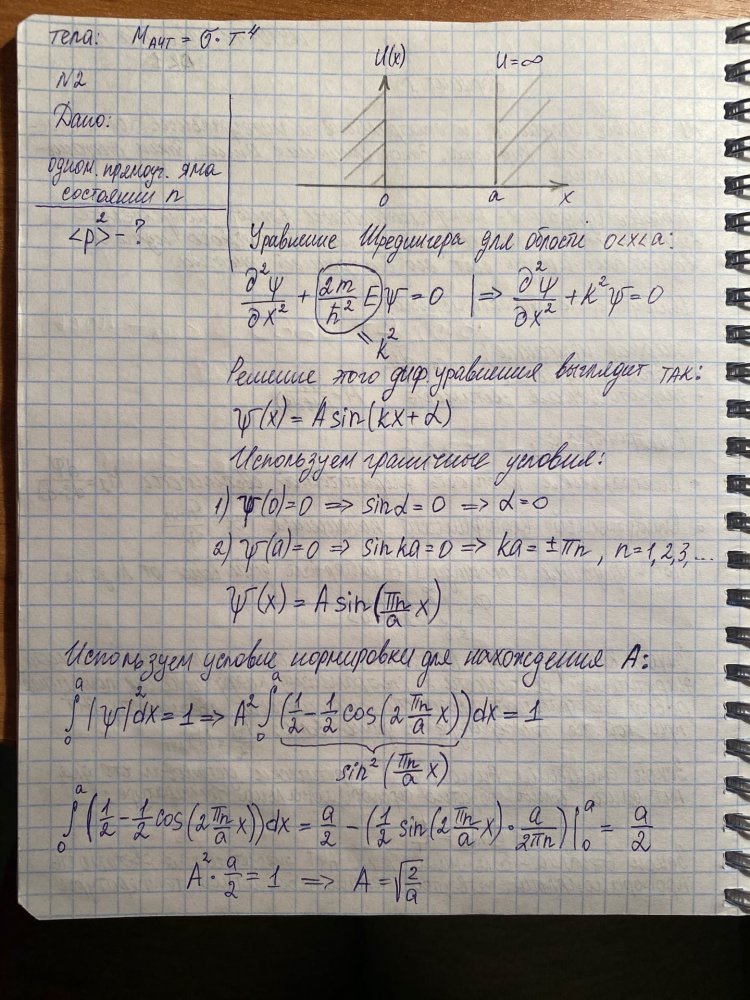 тела: Mачт = σ·T⁴
N2
Дано:
одном. прямоуг. яма
состоянии n
<p²> - ?
U(x)
U=∞
0
a
x
Уравнение Шредингера для области 0<x<a:
∂²ψ/∂x² + (2m/ħ² E)ψ = 0 | => ∂²ψ/∂x² + k²ψ = 0
= k²
Решение этого диф. уравнения выглядит так:
ψ(x) = A sin(kx + α)
Используем граничные условия:
1) ψ(0)=0 => sin α = 0 => α=0
2) ψ(a)=0 => sin ka = 0 => ka = ±πn, n=1,2,3,...
ψ(x) = A sin(πn/a x)
Используем условие нормировки для нахождения A:
∫₀ᵃ |ψ|²dx = 1 => A² ∫₀ᵃ (1/2 - 1/2 cos(2 πn/a x))dx = 1
sin²(πn/a x)
∫₀ᵃ (1/2 - 1/2 cos(2 πn/a x))dx = a/2 - (1/2 sin(2 πn/a x) · a/2πn)|₀ᵃ = a/2
A² · a/2 = 1 => A = √(2/a)